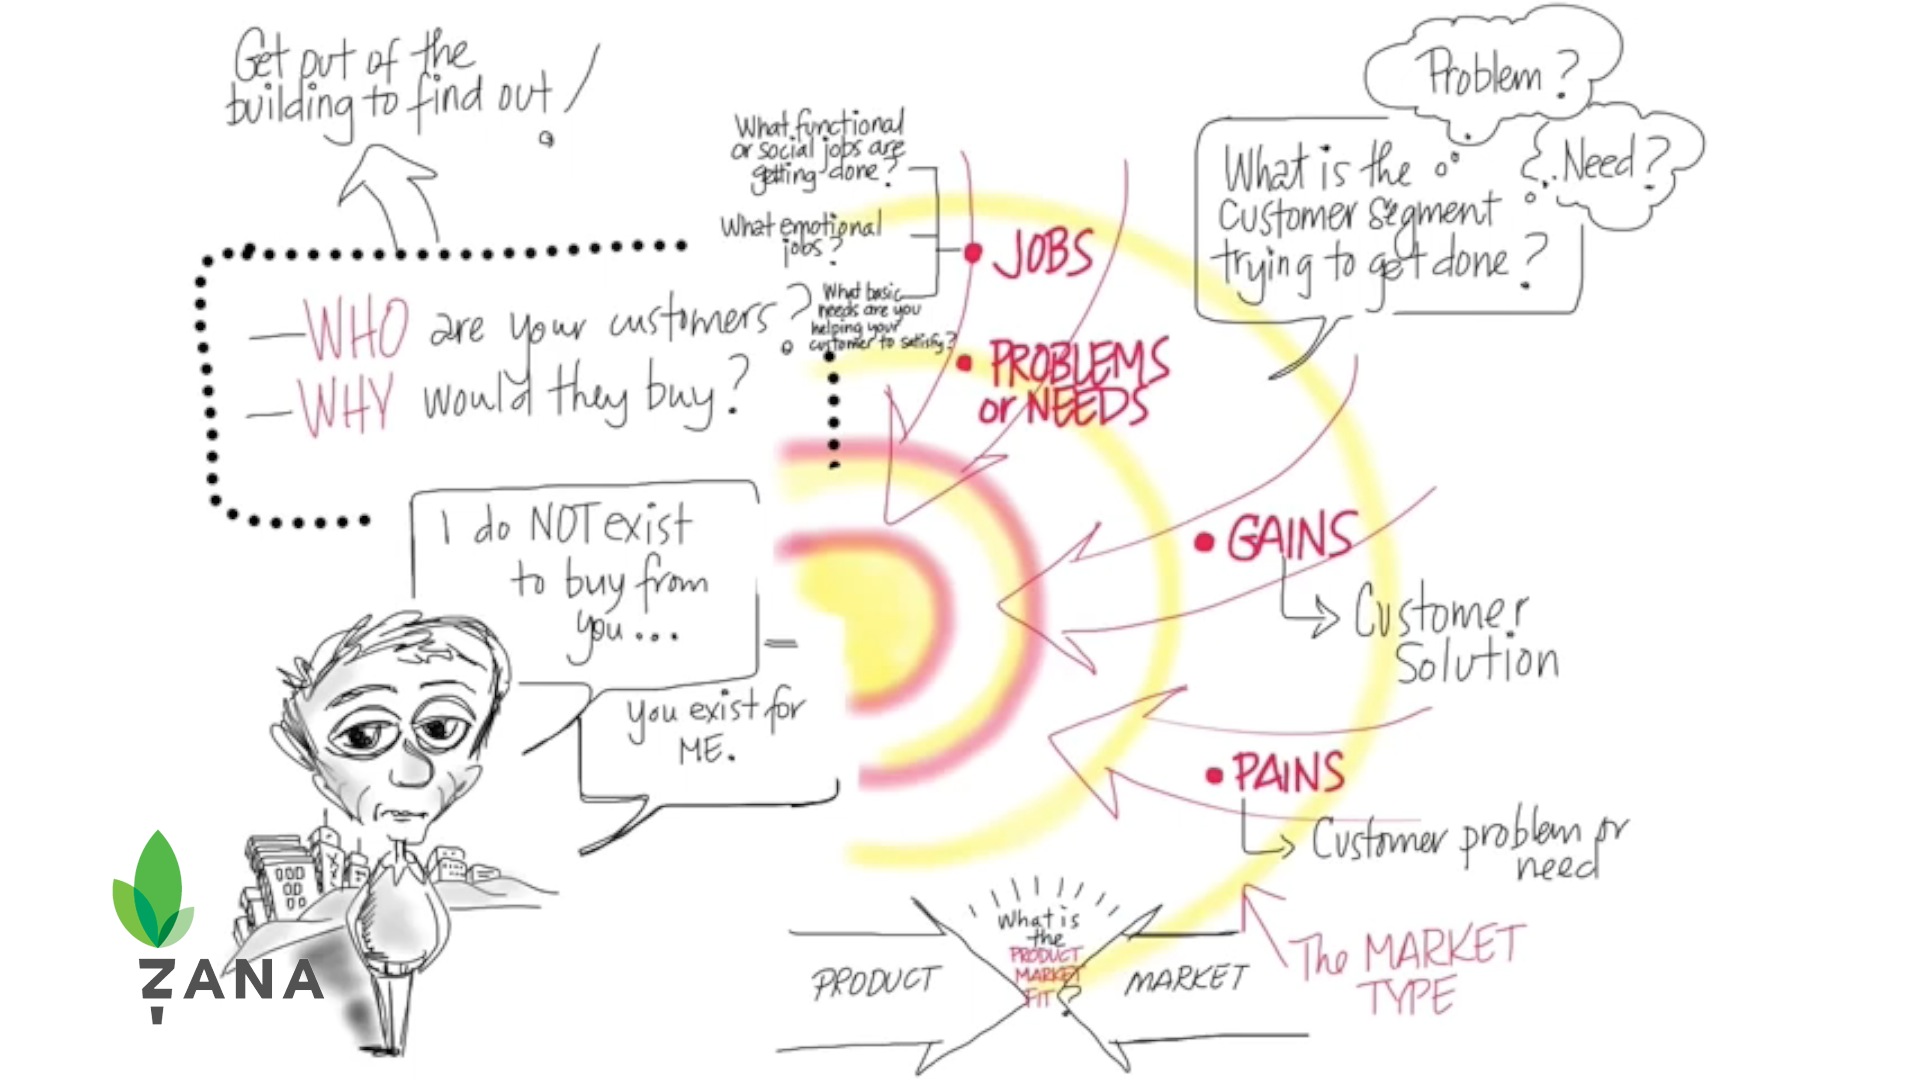 Get out of the
building to find out!
— WHO are your customers?
— WHY would they buy?
I do NOT exist
to buy from
you...
you exist for
ME.
What functional
or social jobs are
getting done?
What emotional
jobs?
What basic
needs are you
helping your
customer to satisfy?
• JOBS
• PROBLEMS
or NEEDS
Problem?
Need?
What is the
customer segment
trying to get done?
• GAINS
Customer
Solution
• PAINS
Customer problem or
need
The MARKET
TYPE
PRODUCT
What is
the
PRODUCT
MARKET
FIT?
MARKET
ZANA